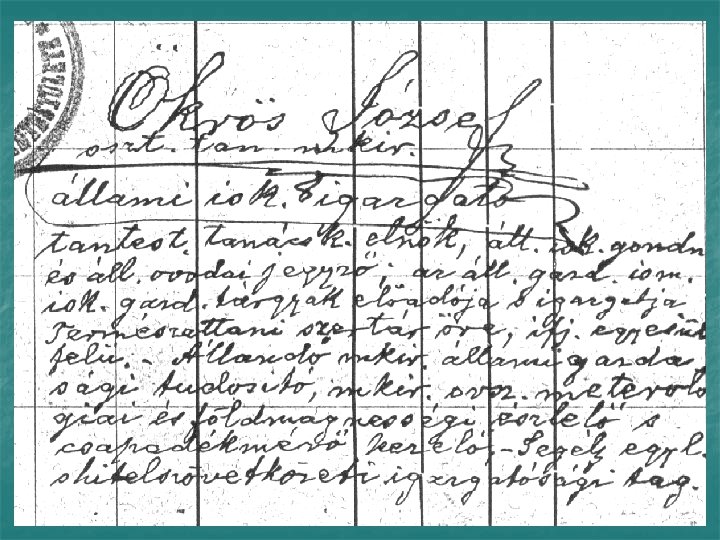 TESTÜLETE *
Ökrös József
oszt. tan. mkir.
állami isk. s igazgató
tantest. tanácsk. elnök, áll. isk. gondn
és áll. ovodai jegyző; az áll. gazd. ism.
isk. gazd. tárgyak előadója s igazgatja
Természettani szertár őre, ifj. egyesül
felü. - Állandó mkir. állami gazda
sági tudositó, mkir. orsz. meteorolo
giai és földmágnességi észlelő s
csapadékmérő kezelő. - Segély egyl.
s hitelszövetkezeti igazgatósági tag.